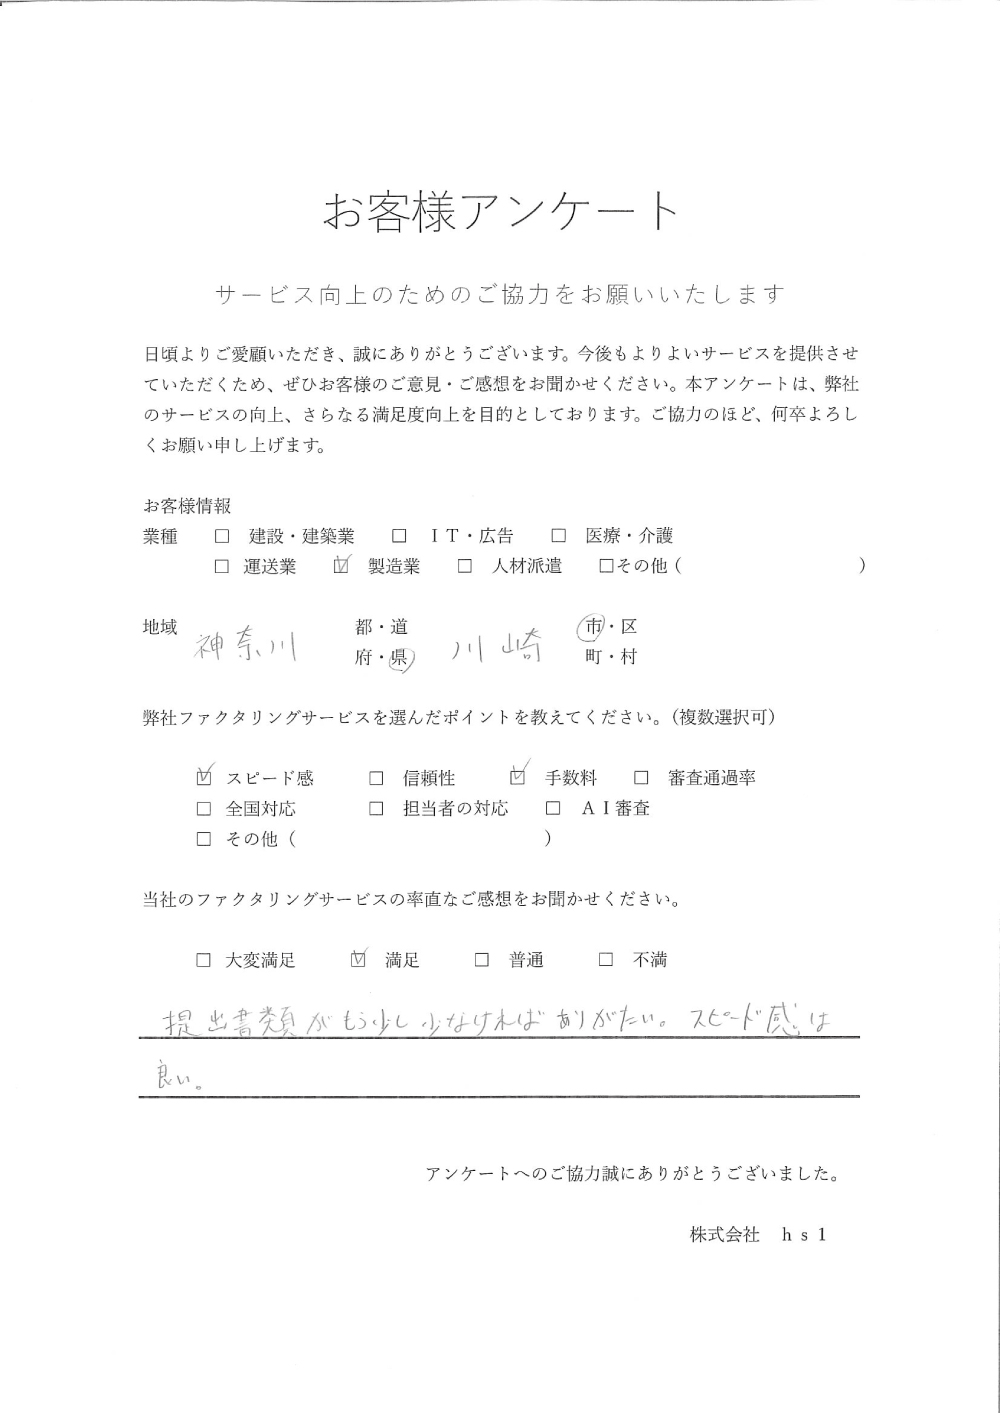 お客様アンケート
サービス向上のためのご協力をお願いいたします
日頃よりご愛顧いただき、誠にありがとうございます。今後もよりよいサービスを提供させ
ていただくため、ぜひお客様のご意見・ご感想をお聞かせください。本アンケートは、弊社
のサービスの向上、さらなる満足度向上を目的としております。ご協力のほど、何卒よろし
くお願い申し上げます。
お客様情報
業種 □ 建設・建築業 □ ＩＴ・広告 □ 医療・介護
□ 運送業 ☑ 製造業 □ 人材派遣 □その他（ ）
地域 神奈川 都・道 府・県 川崎 市・区 町・村
弊社ファクタリングサービスを選んだポイントを教えてください。（複数選択可）
☑ スピード感 □ 信頼性 ☑ 手数料 □ 審査通過率
□ 全国対応 □ 担当者の対応 □ ＡＩ審査
□ その他（ ）
当社のファクタリングサービスの率直なご感想をお聞かせください。
□ 大変満足 ☑ 満足 □ 普通 □ 不満
提出書類がもう少し少なければありがたい。スピード感は
良い。
アンケートへのご協力誠にありがとうございました。
株式会社 ｈｓ１